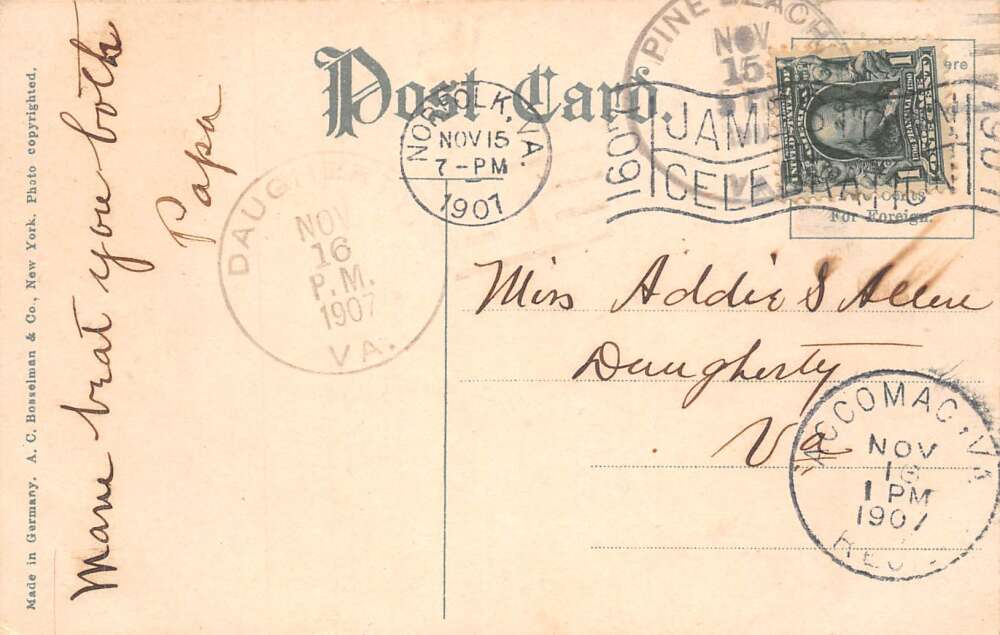 Post Card.
PINE BEACH
NOV
15
NORFOLK, VA.
NOV 15
7-PM
1907
1607
1907
CELEBRATION
1
ere
For Foreign.
DAUGHERTY
NOV
16
P.M.
1907
VA.
Mame beat you both
Papa
Miss Addie S Allen
Daugherty
Va
ACCOMAC, VA
NOV
16
1 PM
1907
REC'D
Made in Germany. A. C. Bosselman & Co., New York. Photo copyrighted.